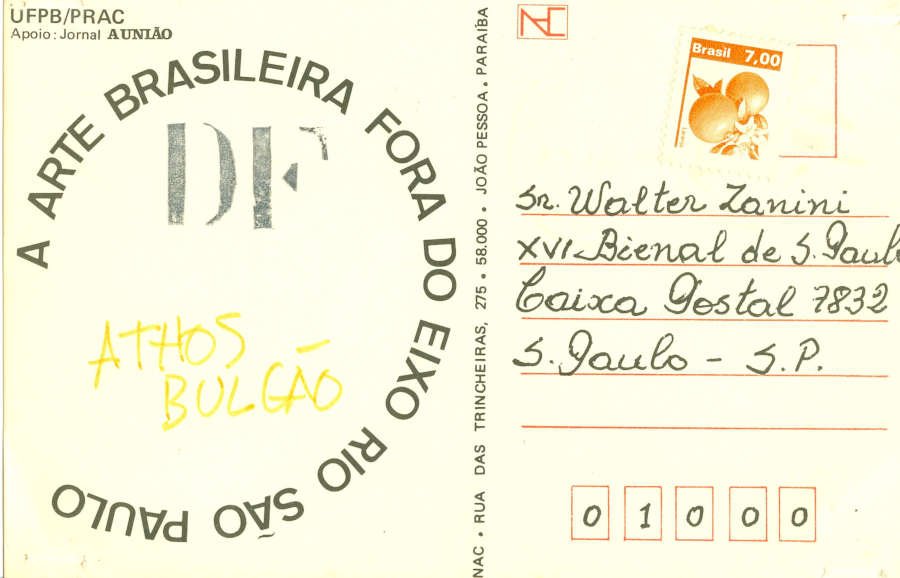 UFPB/PRAC
Apoio: Jornal A UNIÃO
A ARTE BRASILEIRA FORA DO EIXO RIO SÃO PAULO
DF
ATHOS
BULCÃO
NAC • RUA DAS TRINCHEIRAS, 275 • 58.000 • JOÃO PESSOA • PARAÍBA
NAC
Brasil 7,00
Sr. Walter Zanini
XVI Bienal de S. Paulo
Caixa Postal 7832
S. Paulo - S.P.
0 1 0 0 0